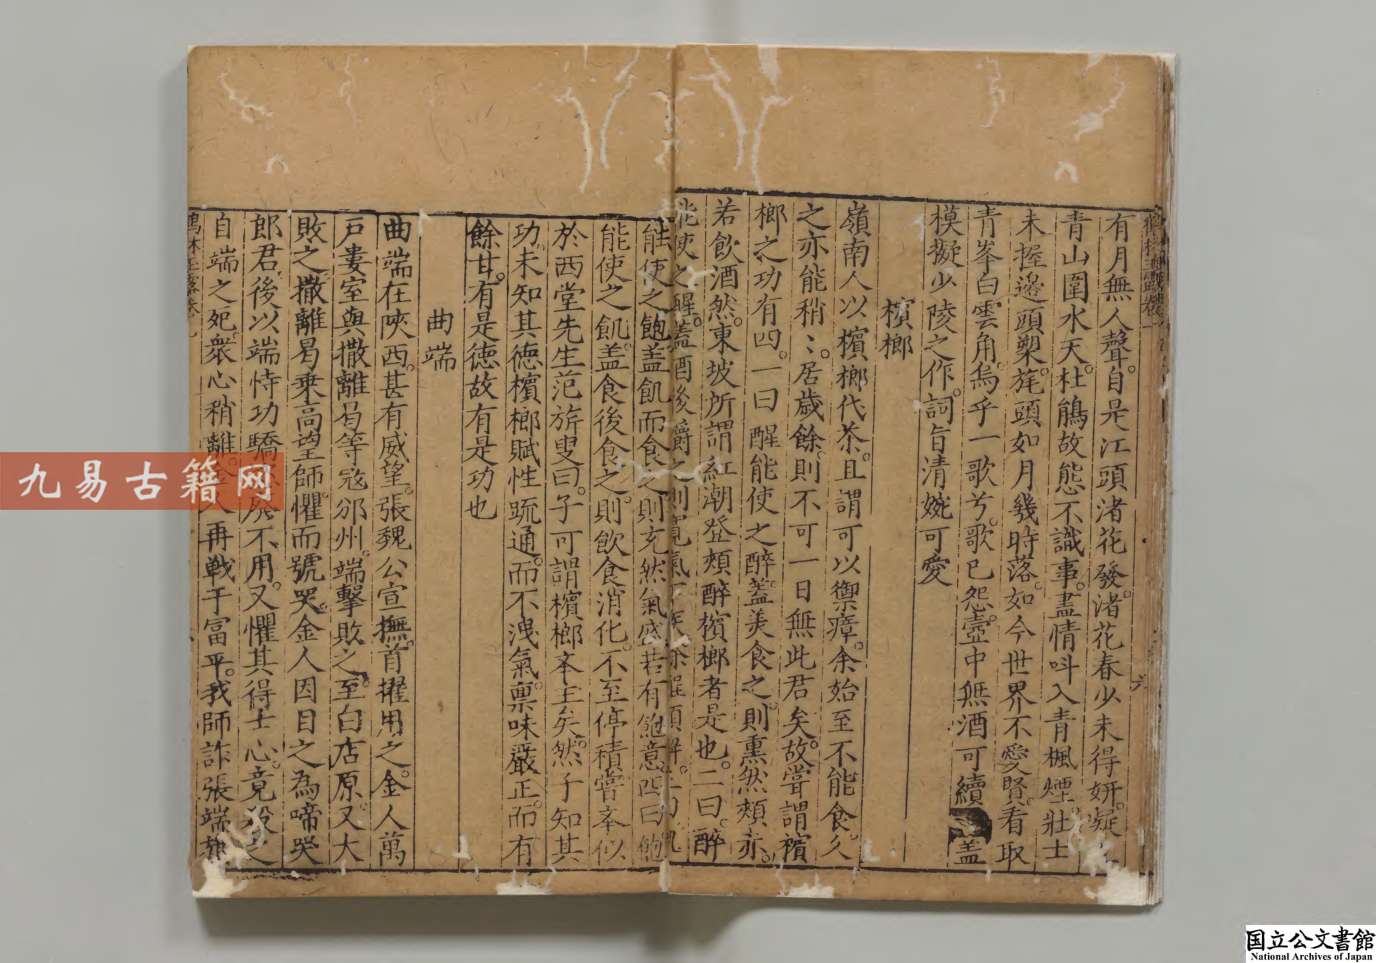 有月無人聲自是江頭渚花發渚花春少未得妍凝
青山圍水天杜鵑故態不識事盡情呌入青楓煙壯士
未握邊頭槊旄頭如月幾時落如今世界不愛賢看取
青峯白雲角烏乎一歌兮歌已怨壼中無酒可續盖
模擬少陵之作詞旨清婉可愛
檳榔
嶺南人以檳榔代茶且謂可以禦瘴余始至不能食久
之亦能稍〻居歲餘則不可一日無此君矣故嘗謂檳
榔之功有四一曰醒能使之醉蓋美食之則熏然頰赤
若飲酒然東坡所謂紅潮登頰醉檳榔者是也二曰醉
能使之醒蓋酒後嚼之則寬氣
能使之飽盖飢而食之則充然氣盛若有飽意四曰飽
能使之飢盖食後食之則飲食消化不至停積嘗夲似
於西堂先生范旂叟曰子可謂檳榔夲主矣然子知其
功未知其徳檳榔賦性疏通而不洩氣禀味嚴正而有
餘甘有是徳故有是功也
曲端
曲端在陝西甚有威望張魏公宣撫首擢用之金人萬
戸婁室與撒離曷等寇邠州端擊敗之至白店原又大
敗之撒離曷乗高望師懼而號哭金人因目之為啼哭
郎君後以端恃功驕不用又懼其得士心竟殺之
自端之死衆心稍離人再戰于富平我師詐張端旗
九易古籍网
国立公文書館
National Archives of Japan